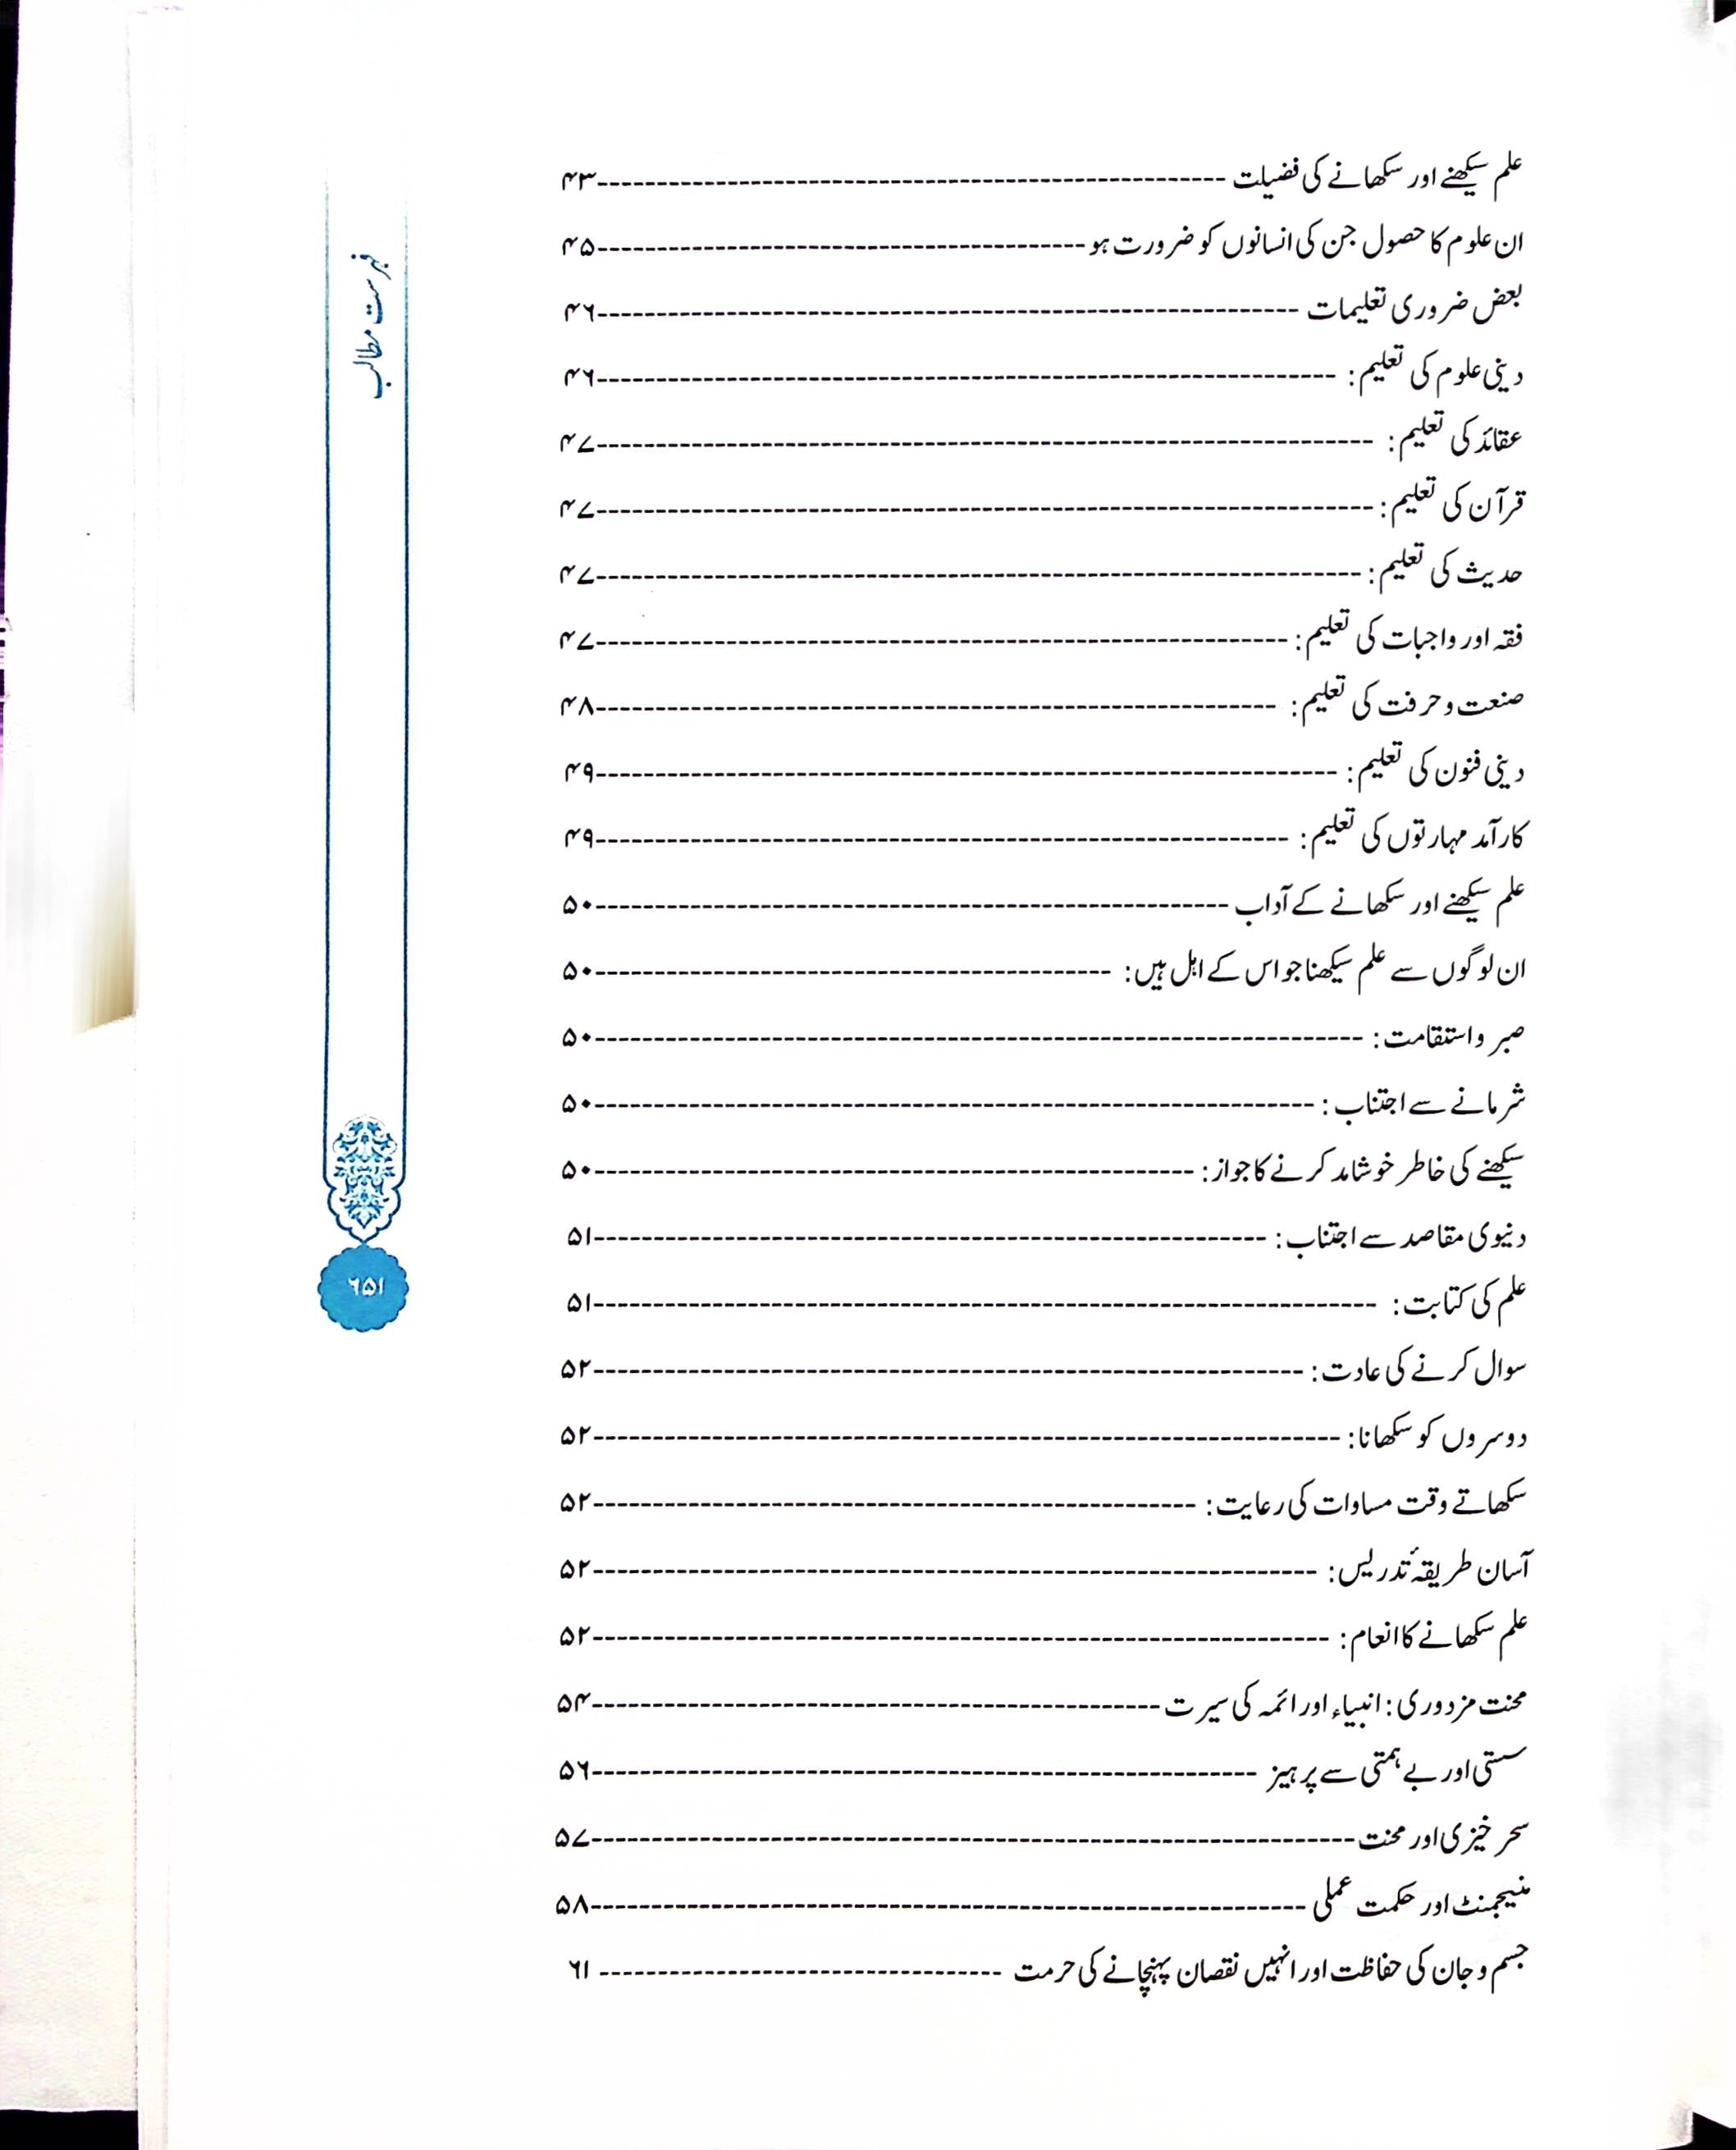 علم سیکھنے اور سکھانے کی فضیلت ---------- ۴۳
ان علوم کا حصول جن کی انسانوں کو ضرورت ہو ---------- ۴۵
بعض ضروری تعلیمات ---------- ۴۶
دینی علوم کی تعلیم: ---------- ۴۶
عقائد کی تعلیم: ---------- ۴۷
قرآن کی تعلیم: ---------- ۴۷
حدیث کی تعلیم: ---------- ۴۷
فقہ اور واجبات کی تعلیم: ---------- ۴۷
صنعت و حرفت کی تعلیم: ---------- ۴۸
دینی فنون کی تعلیم: ---------- ۴۹
کارآمد مہارتوں کی تعلیم: ---------- ۴۹
علم سیکھنے اور سکھانے کے آداب ---------- ۵۰
ان لوگوں سے علم سیکھنا جو اس کے اہل ہیں: ---------- ۵۰
صبر و استقامت: ---------- ۵۰
شرمانے سے اجتناب: ---------- ۵۰
سیکھنے کی خاطر خوشامد کرنے کا جواز: ---------- ۵۰
دنیوی مقاصد سے اجتناب: ---------- ۵۱
علم کی کتابت: ---------- ۵۱
سوال کرنے کی عادت: ---------- ۵۲
دوسروں کو سکھانا: ---------- ۵۲
سکھاتے وقت مساوات کی رعایت: ---------- ۵۲
آسان طریقۂ تدریس: ---------- ۵۲
علم سکھانے کا انعام: ---------- ۵۲
محنت مزدوری: انبیاء اور ائمہ کی سیرت ---------- ۵۴
سستی اور بے ہمتی سے پرہیز ---------- ۵۶
سحر خیزی اور محنت ---------- ۵۷
منیجمنٹ اور حکمت عملی ---------- ۵۸
جسم و جان کی حفاظت اور انہیں نقصان پہنچانے کی حرمت ---------- ۶۱
فہرست مطالب
۶۵۱